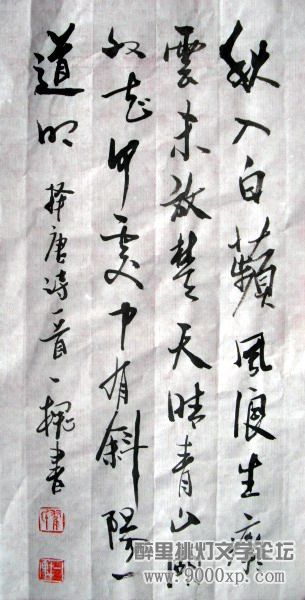 秋入白蘋風浪生癡
雲未放楚天晴青山
處中有斜陽一
道明
择唐诗一首一書
醉里挑灯文学论坛
www.9000xp.com